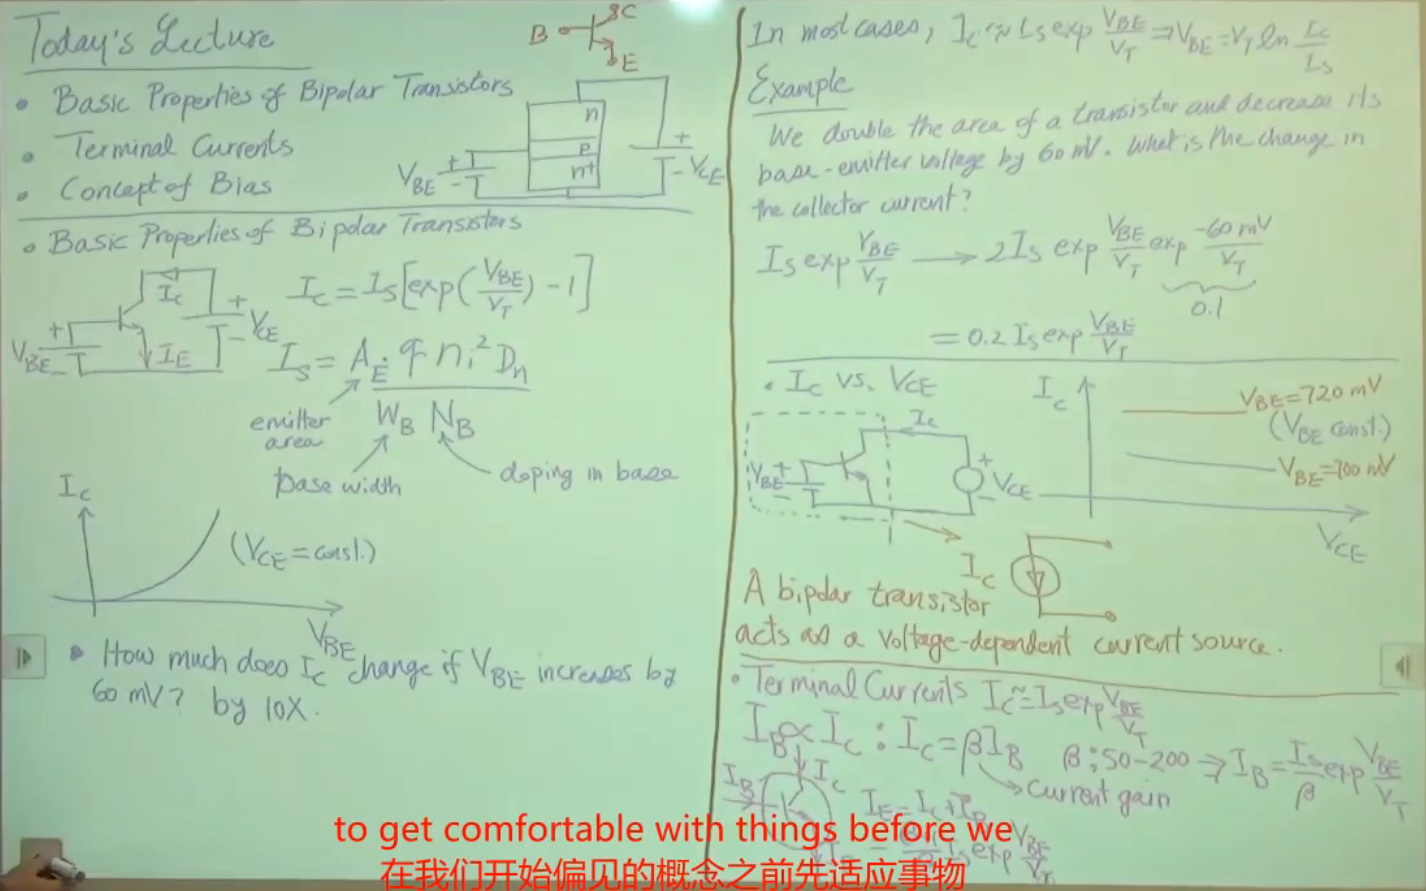 Today's Lecture
B
C
E
• Basic Properties of Bipolar Transistors
• Terminal Currents
• Concept of Bias
n
p
n+
VBE
+
-
+
- VCE
• Basic Properties of Bipolar Transistors
IC
IE
VBE
+
-
+
- VCE
IC = IS [exp(VBE/VT) - 1]
IS = AE q ni² Dn / WB NB
emitter area
base width
doping in base
IC
(VCE = const.)
VBE
• How much does IC change if VBE increases by
60 mV? by 10X.
In most cases, IC ≈ IS exp VBE/VT ⇒ VBE = VT ln IC/IS
Example
We double the area of a transistor and decrease its
base-emitter voltage by 60 mV. What is the change in
the collector current?
IS exp VBE/VT → 2 IS exp VBE/VT exp -60 mV/VT
0.1
= 0.2 IS exp VBE/VT
• IC vs. VCE
IC
VBE
+
-
+
- VCE
IC
VBE = 720 mV
(VBE const.)
VBE = 700 mV
VCE
IC
A bipolar transistor
acts as a voltage-dependent current source.
• Terminal Currents IC ≈ IS exp VBE/VT
IB ∝ IC : IC = βIB β: 50-200 ⇒ IB = IS/β exp VBE/VT
current gain
IB
IC
IE = IC + IB
IS exp VBE/VT
to get comfortable with things before we
在我们开始偏见的概念之前先适应事物